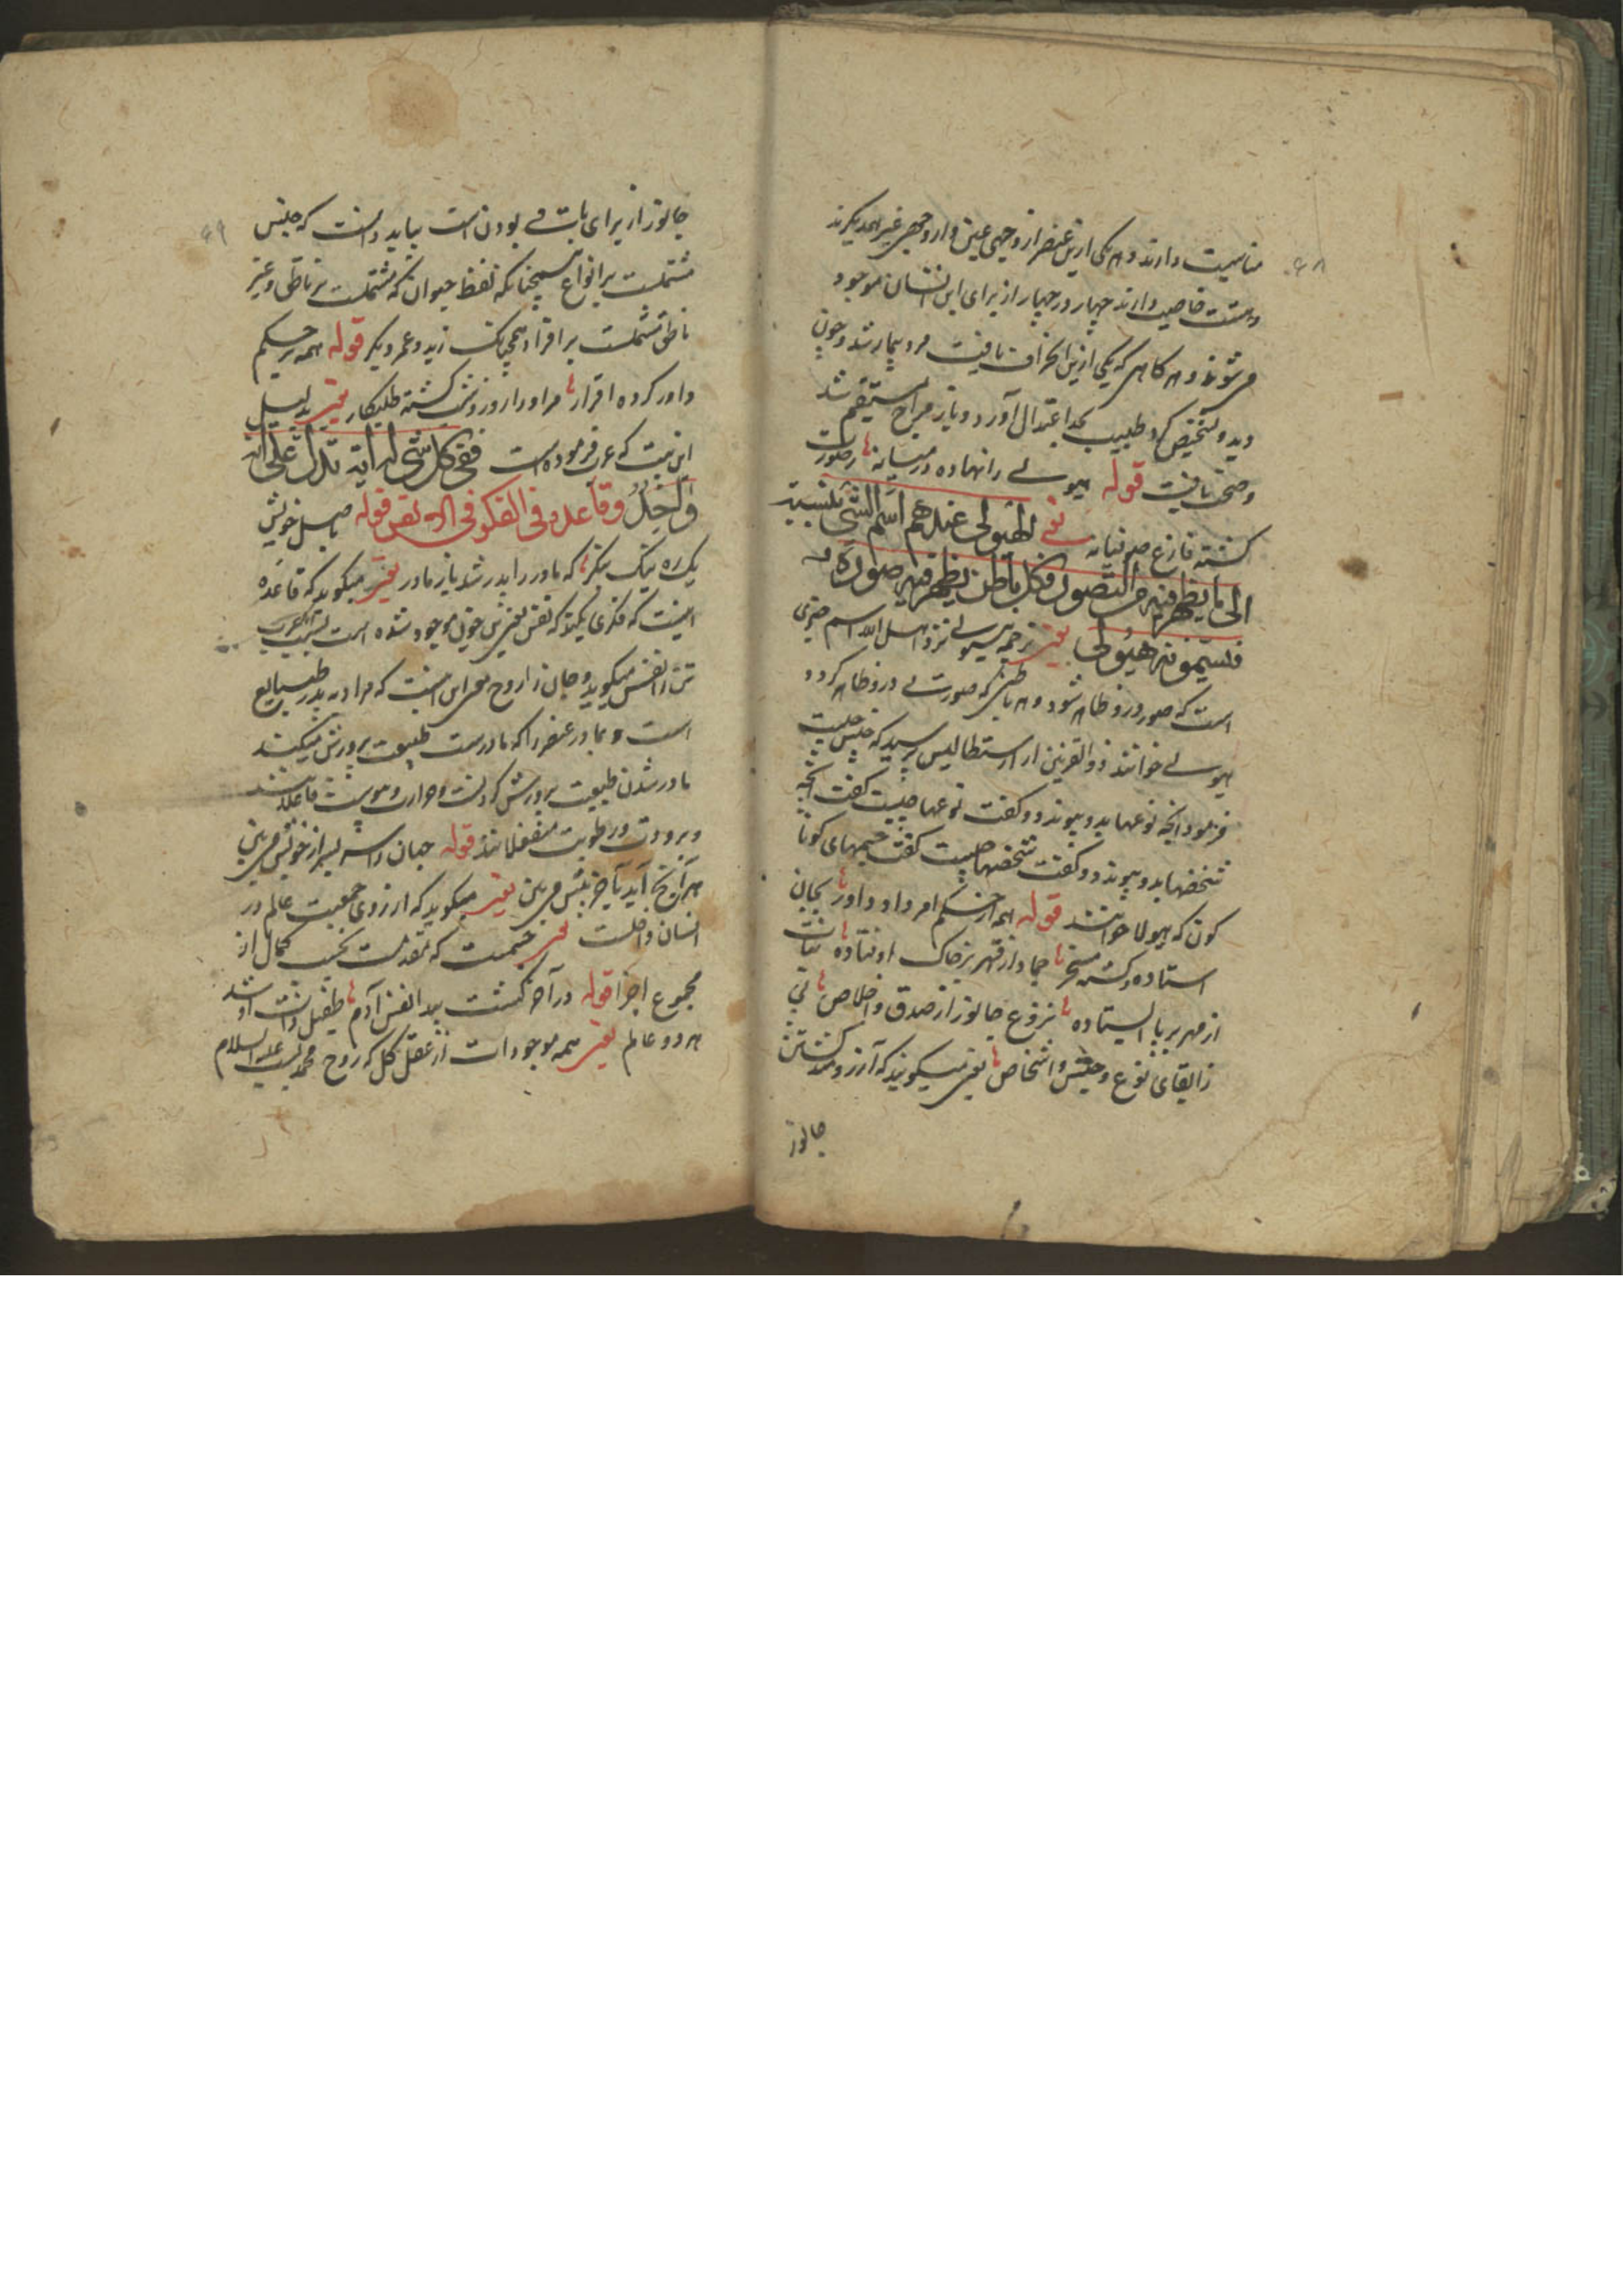 ۶۸
مناسبت دارند و هر یکی ازین عنصر از وجهی عین و از وجهی غیر همدیگرند
و هست خاصیت دارند چهار در چهار از برای این انسان موجود
می‌شوند و هر گاهی که یکی ازین انحراف یافت مرد بیمار شد و چون
دید و تشخیص کرد طبیب بحد اعتدال آورد و باز مزاج مستقیم شد
و صحت یافت قوله هیولی را نهاده در میانه ز صورت
گشته فارغ صوفیانه یعنی الهیولی عندهم اسم الشی بنسبته
الی ما یظهر فیه من التصور فکل باطن یظهر فیه صورة
فسیمونه هیولی یعنی ترجمه هیولی نزد اهل الله اسم چیزی
است که صور درو ظاهر شود و هر باطنی که صورت درو ظاهر گردد
هیولی خوانند ذوالقرنین از ارسطالیس پرسید که جنس چیست
فرمود انچه نوعها بدو پیوندد و گفت نوعها چیست گفت انچه
شخصها بدو پیوندد و گفت شخصها چیست گفت جسمهای کونا
کون که هیولا خوانند قوله همه از حکم امر داد داور بجان
استاده و گشته مسخر جماد از قهر بر خاک اوفتاده نبات
از مهر بر پا ایستاده نزوع جانور از صدق و اخلاص پی
زابقای نوع و جنس و اشخاص یعنی میگویند که آرزومند گشتن
جانور
۶۹
جانور از برای باقی بودن است بباید دانست که جنس
مشتملست بر انواع همچنانکه لفظ حیوان که مشتملست بر ناطق و غیر
ناطق مشتملست بر افراد همچنانک زید و عمر و بکر قوله همه بر حکم
داور کرده اقرار مر او را روز و شب گشته طلبکار یعنی بدلیل
این بیت که عرب فرموده است ففی کل شی له آیة تدل علی انه
واحد وقاعده فی الفکر فی الانفس قوله باصل خویش
یک ره نیک بنگر که مادر را پدر شد باز مادر یعنی میگوید که قاعده
اینست که فکری بکند که نفس بعین خون موجود شده است
تن را نفس میگوید و جان را روح این است که مراد به پدر طبایع
است و بمادر عنصر را که مادرست طبیعت پرورش میکند
مادر شدن طبیعت پرورش کردنست و حرارت و یبوست فاعلند
و برودت و رطوبت منفعلانند قوله جهان را سر بسر از خویش می بین
هر آنچ آید بآخر پیش می بین یعنی میگوید که از روی جمعیت عالم در
انسان داخلست که مقدمست بحسب کمال از
مجموع اجزا قوله در آخر گشت پیدا نفس آدم طفیل ذات او شد
هر دو عالم یعنی همه موجودات از عقل کل که روح محمدیست علیه السلام